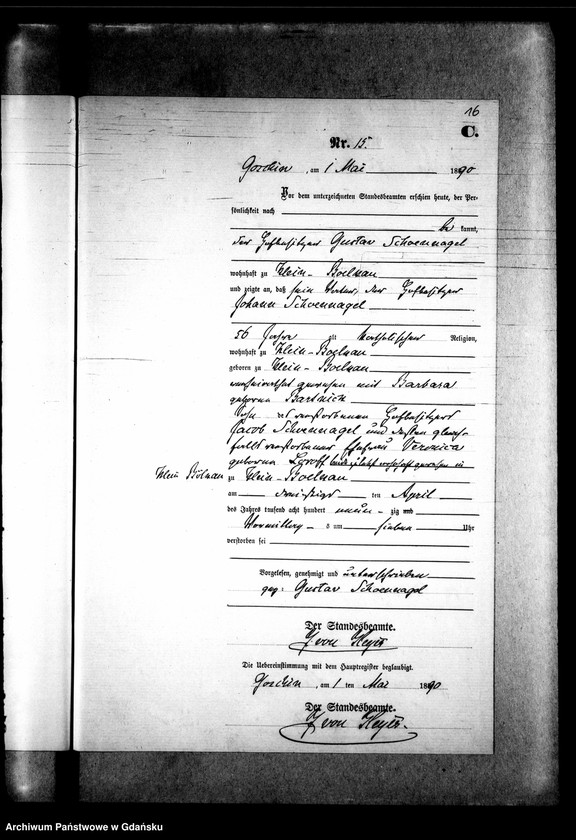 16
C.
Nr. 15.
Goschin, am 1 Mai 1890
Vor dem unterzeichneten Standesbeamten erschien heute, der Per-
sönlichkeit nach
be kannt,
der Hofbesitzer Gustav Schoennagel
wohnhaft zu Klein-Boelnau
und zeigte an, daß sein Vater, der Hofbesitzer
Johann Schoennagel
56 Jahre alt katholischer Religion,
wohnhaft zu Klein-Boelnau
geboren zu Klein-Boelnau
verheirathet gewesen mit Barbara
geborne Bartnick
Sohn des verstorbenen Hofbesitzers
Jacob Schoennagel und dessen gleich-
falls verstorbener Ehefrau Veronica
geborne beide zuletzt wohnhaft gewesen in
Klein Bölnau zu Klein-Boelnau
am dreißigst ten April
des Jahres tausend acht hundert neun-zig und
Vormittag-s um sieben Uhr
verstorben sei
Vorgelesen, genehmigt und unterschrieben
gez: Gustav Schoennagel
Der Standesbeamte.
von
Die Uebereinstimmung mit dem Hauptregister beglaubigt.
Goschin, am 1 ten Mai 1890
Der Standesbeamte.
von
Archiwum Państwowe w Gdańsku